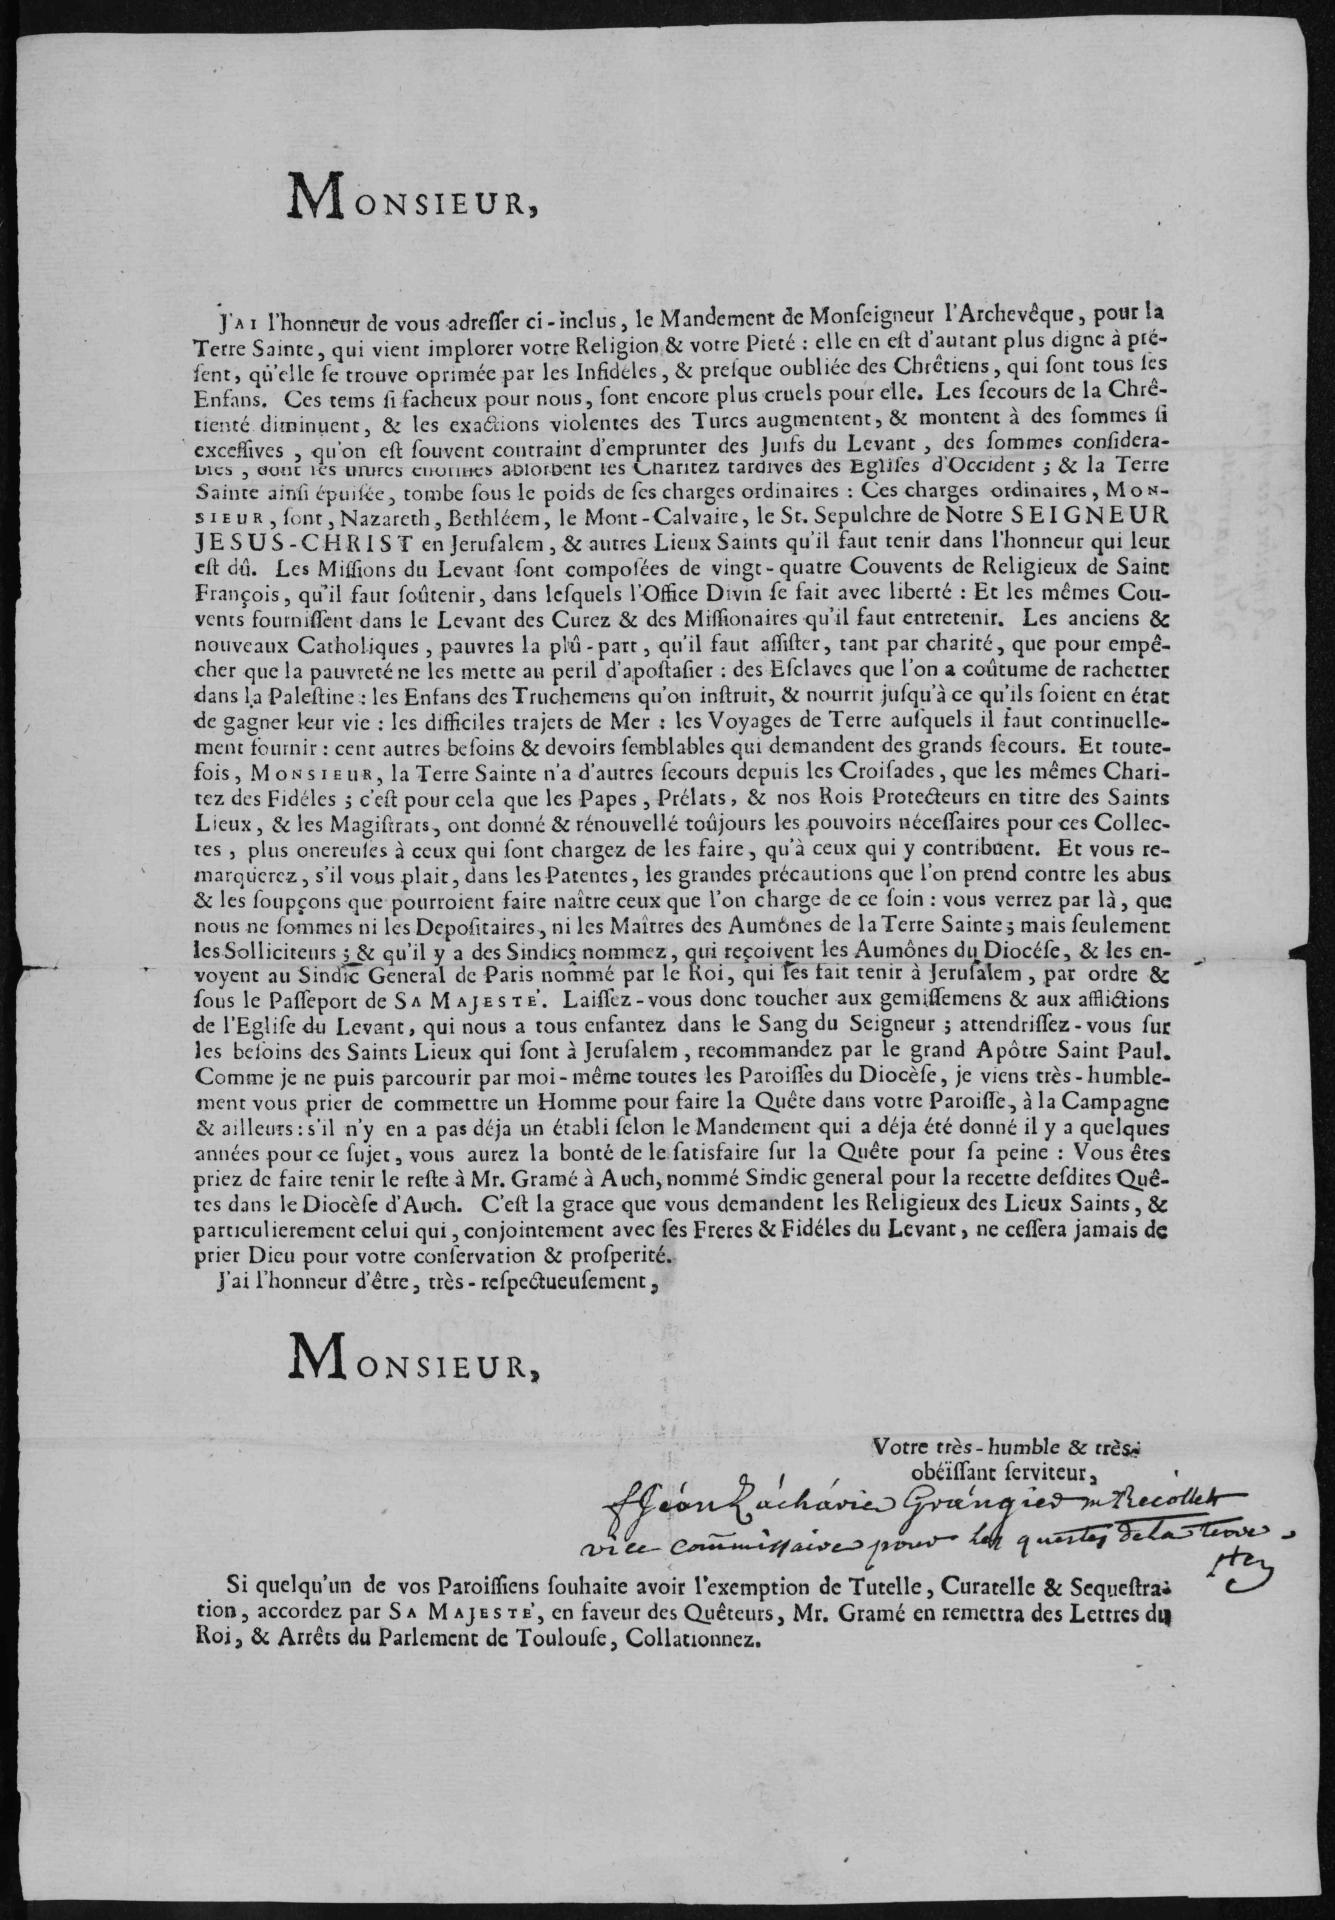 MONSIEUR,
J'AI l'honneur de vous adreſſer ci-inclus, le Mandement de Monſeigneur l'Archevêque, pour la
Terre Sainte, qui vient implorer votre Religion & votre Pieté : elle en eſt d'autant plus digne à pré-
ſent, qu'elle ſe trouve oprimée par les Infidéles, & preſque oubliée des Chrêtiens, qui ſont tous ſes
Enfans. Ces tems ſi facheux pour nous, ſont encore plus cruels pour elle. Les ſecours de la Chrê-
tienté diminuent, & les exactions violentes des Turcs augmentent, & montent à des ſommes ſi
exceſſives, qu'on eſt ſouvent contraint d'emprunter des Juifs du Levant, des ſommes conſidera-
bles, dont les uſures énormes abſorbent les Charitez tardives des Egliſes d'Occident ; & la Terre
Sainte ainſi épuiſée, tombe ſous le poids de ſes charges ordinaires : Ces charges ordinaires, MON-
SIEUR, ſont, Nazareth, Bethléem, le Mont-Calvaire, le St. Sepulchre de Notre SEIGNEUR
JESUS-CHRIST en Jeruſalem, & autres Lieux Saints qu'il faut tenir dans l'honneur qui leur
eſt dû. Les Miſſions du Levant ſont compoſées de vingt-quatre Couvents de Religieux de Saint
François, qu'il faut ſoûtenir, dans leſquels l'Office Divin ſe fait avec liberté : Et les mêmes Cou-
vents fourniſſent dans le Levant des Curez & des Miſſionaires qu'il faut entretenir. Les anciens &
nouveaux Catholiques, pauvres la plû-part, qu'il faut aſſiſter, tant par charité, que pour empê-
cher que la pauvreté ne les mette au peril d'apoſtaſier : des Eſclaves que l'on a coûtume de rachetter
dans la Paleſtine : les Enfans des Truchemens qu'on inſtruit, & nourrit juſqu'à ce qu'ils ſoient en état
de gagner leur vie : les difficiles trajets de Mer : les Voyages de Terre auſquels il faut continuelle-
ment fournir : cent autres beſoins & devoirs ſemblables qui demandent des grands ſecours. Et toute-
fois, MONSIEUR, la Terre Sainte n'a d'autres ſecours depuis les Croiſades, que les mêmes Chari-
tez des Fidéles ; c'eſt pour cela que les Papes, Prélats, & nos Rois Protecteurs en titre des Saints
Lieux, & les Magiſtrats, ont donné & rénouvellé toûjours les pouvoirs néceſſaires pour ces Collec-
tes, plus onereuſes à ceux qui ſont chargez de les faire, qu'à ceux qui y contribuent. Et vous re-
marquerez, s'il vous plait, dans les Patentes, les grandes précautions que l'on prend contre les abus
& les ſoupçons que pourroient faire naître ceux que l'on charge de ce ſoin : vous verrez par là, que
nous ne ſommes ni les Depoſitaires, ni les Maîtres des Aumônes de la Terre Sainte ; mais ſeulement
les Solliciteurs ; & qu'il y a des Sindics nommez, qui reçoivent les Aumônes du Diocéſe, & les en-
voyent au Sindic General de Paris nommé par le Roi, qui les fait tenir à Jeruſalem, par ordre &
ſous le Paſſeport de SA MAJESTE'. Laiſſez-vous donc toucher aux gemiſſemens & aux afflictions
de l'Egliſe du Levant, qui nous a tous enfantez dans le Sang du Seigneur ; attendriſſez-vous ſur
les beſoins des Saints Lieux qui ſont à Jeruſalem, recommandez par le grand Apôtre Saint Paul.
Comme je ne puis parcourir par moi-même toutes les Paroiſſes du Diocèſe, je viens très-humble-
ment vous prier de commettre un Homme pour faire la Quête dans votre Paroiſſe, à la Campagne
& ailleurs : s'il n'y en a pas déja un établi ſelon le Mandement qui a déja été donné il y a quelques
années pour ce ſujet, vous aurez la bonté de le ſatisfaire ſur la Quête pour ſa peine : Vous êtes
priez de faire tenir le reſte à Mr. Gramé à Auch, nommé Sindic general pour la recette deſdites Quê-
tes dans le Diocèſe d'Auch. C'eſt la grace que vous demandent les Religieux des Lieux Saints, &
particulierement celui qui, conjointement avec ſes Freres & Fidéles du Levant, ne ceſſera jamais de
prier Dieu pour votre conſervation & proſperité.
J'ai l'honneur d'être, très-reſpectueuſement,
MONSIEUR,
Votre très-humble & très-
obéïſſant ſerviteur,
f Jéan Zácharie Grangier Recollet
vice commissaire pour les questes de la terre
Ste
Si quelqu'un de vos Paroiſſiens ſouhaite avoir l'exemption de Tutelle, Curatelle & Sequeſtra-
tion, accordez par SA MAJESTE', en faveur des Quêteurs, Mr. Gramé en remettra des Lettres du
Roi, & Arrêts du Parlement de Toulouſe, Collationnez.